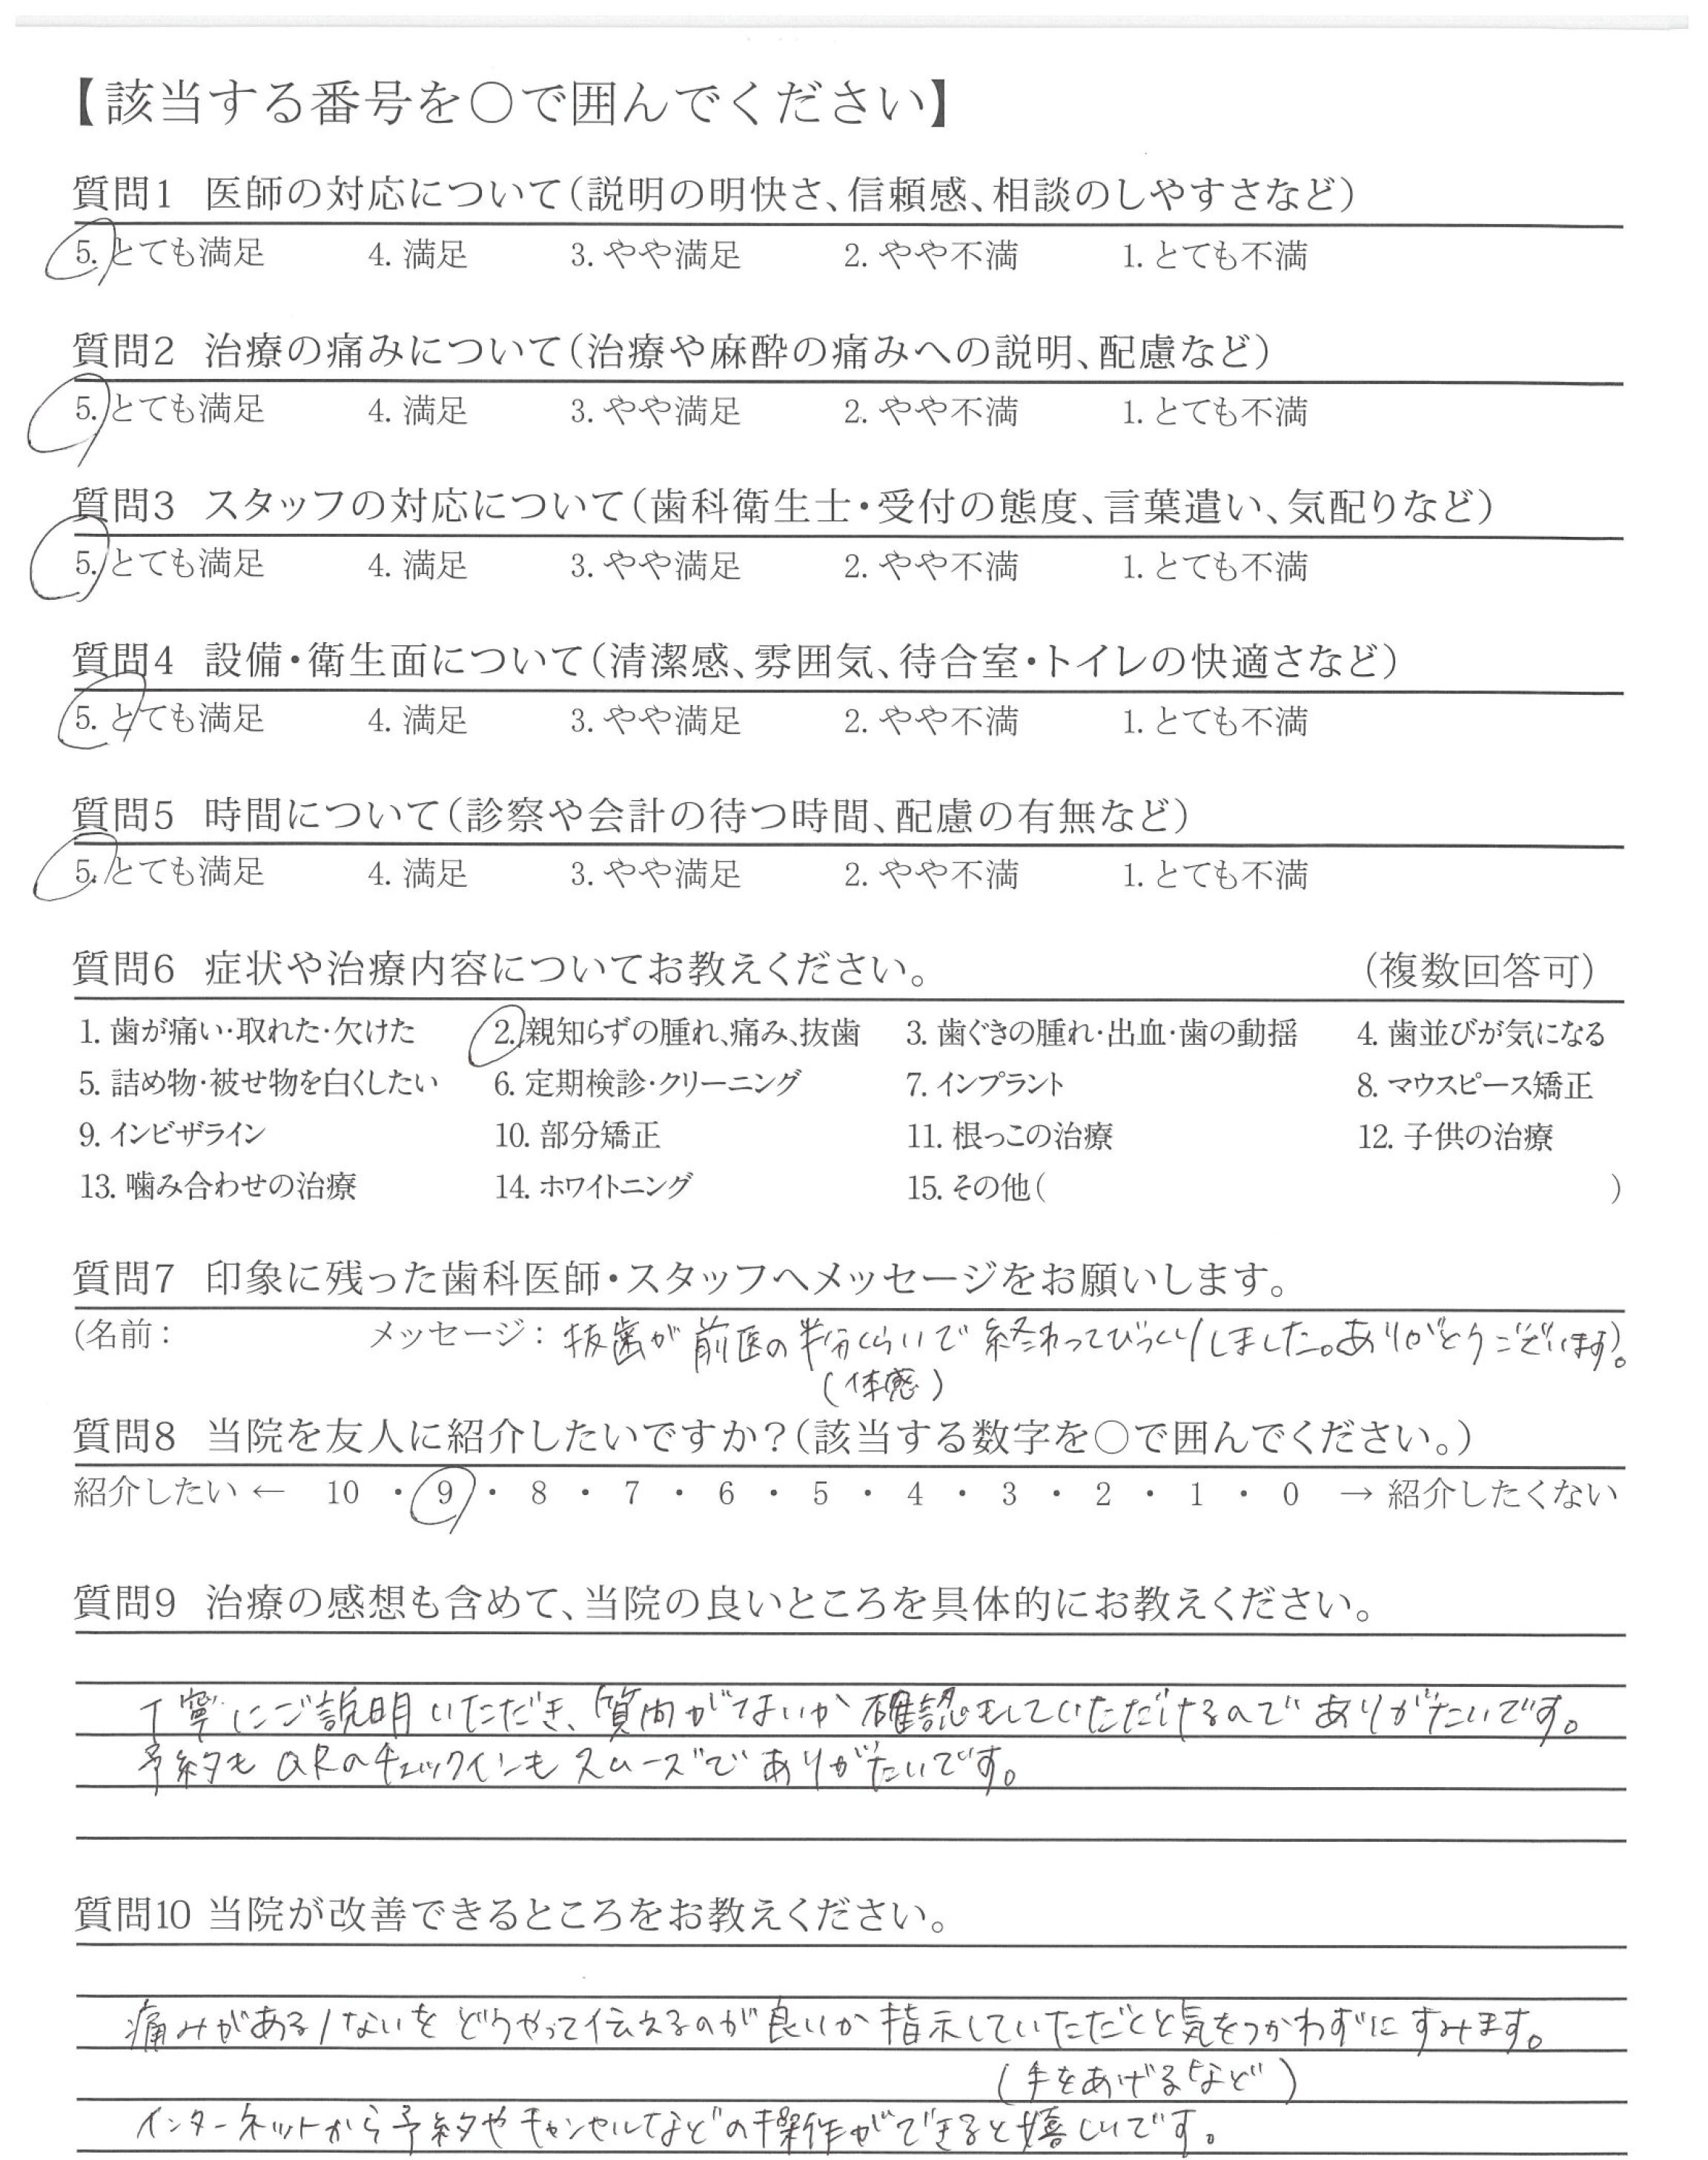 【該当する番号を○で囲んでください】
質問1 医師の対応について(説明の明快さ、信頼感、相談のしやすさなど)
5. とても満足 4. 満足 3. やや満足 2. やや不満 1. とても不満
質問2 治療の痛みについて(治療や麻酔の痛みへの説明、配慮など)
5. とても満足 4. 満足 3. やや満足 2. やや不満 1. とても不満
質問3 スタッフの対応について(歯科衛生士・受付の態度、言葉遣い、気配りなど)
5. とても満足 4. 満足 3. やや満足 2. やや不満 1. とても不満
質問4 設備・衛生面について(清潔感、雰囲気、待合室・トイレの快適さなど)
5. とても満足 4. 満足 3. やや満足 2. やや不満 1. とても不満
質問5 時間について(診察や会計の待つ時間、配慮の有無など)
5. とても満足 4. 満足 3. やや満足 2. やや不満 1. とても不満
質問6 症状や治療内容についてお教えください。 (複数回答可)
1. 歯が痛い・取れた・欠けた 2. 親知らずの腫れ、痛み、抜歯 3. 歯ぐきの腫れ・出血・歯の動揺 4. 歯並びが気になる
5. 詰め物・被せ物を白くしたい 6. 定期検診・クリーニング 7. インプラント 8. マウスピース矯正
9. インビザライン 10. 部分矯正 11. 根っこの治療 12. 子供の治療
13. 噛み合わせの治療 14. ホワイトニング 15. その他( )
質問7 印象に残った歯科医師・スタッフへメッセージをお願いします。
(名前: メッセージ: 抜歯が前医の半分くらいで終わってびっくりしました。ありがとうございます)。
(体感)
質問8 当院を友人に紹介したいですか?(該当する数字を○で囲んでください。)
紹介したい ← 10 ・ 9 ・ 8 ・ 7 ・ 6 ・ 5 ・ 4 ・ 3 ・ 2 ・ 1 ・ 0 → 紹介したくない
質問9 治療の感想も含めて、当院の良いところを具体的にお教えください。
丁寧にご説明いただき、質問がないか確認もしていただけるのでありがたいです。
予約もQRのチェックインもスムーズでありがたいです。
質問10 当院が改善できるところをお教えください。
痛みがある/ないをどうやって伝えるのが良いか指示していただくと気をつかわずにすみます。
(手をあげるなど)
インターネットから予約やキャンセルなどの操作ができると嬉しいです。